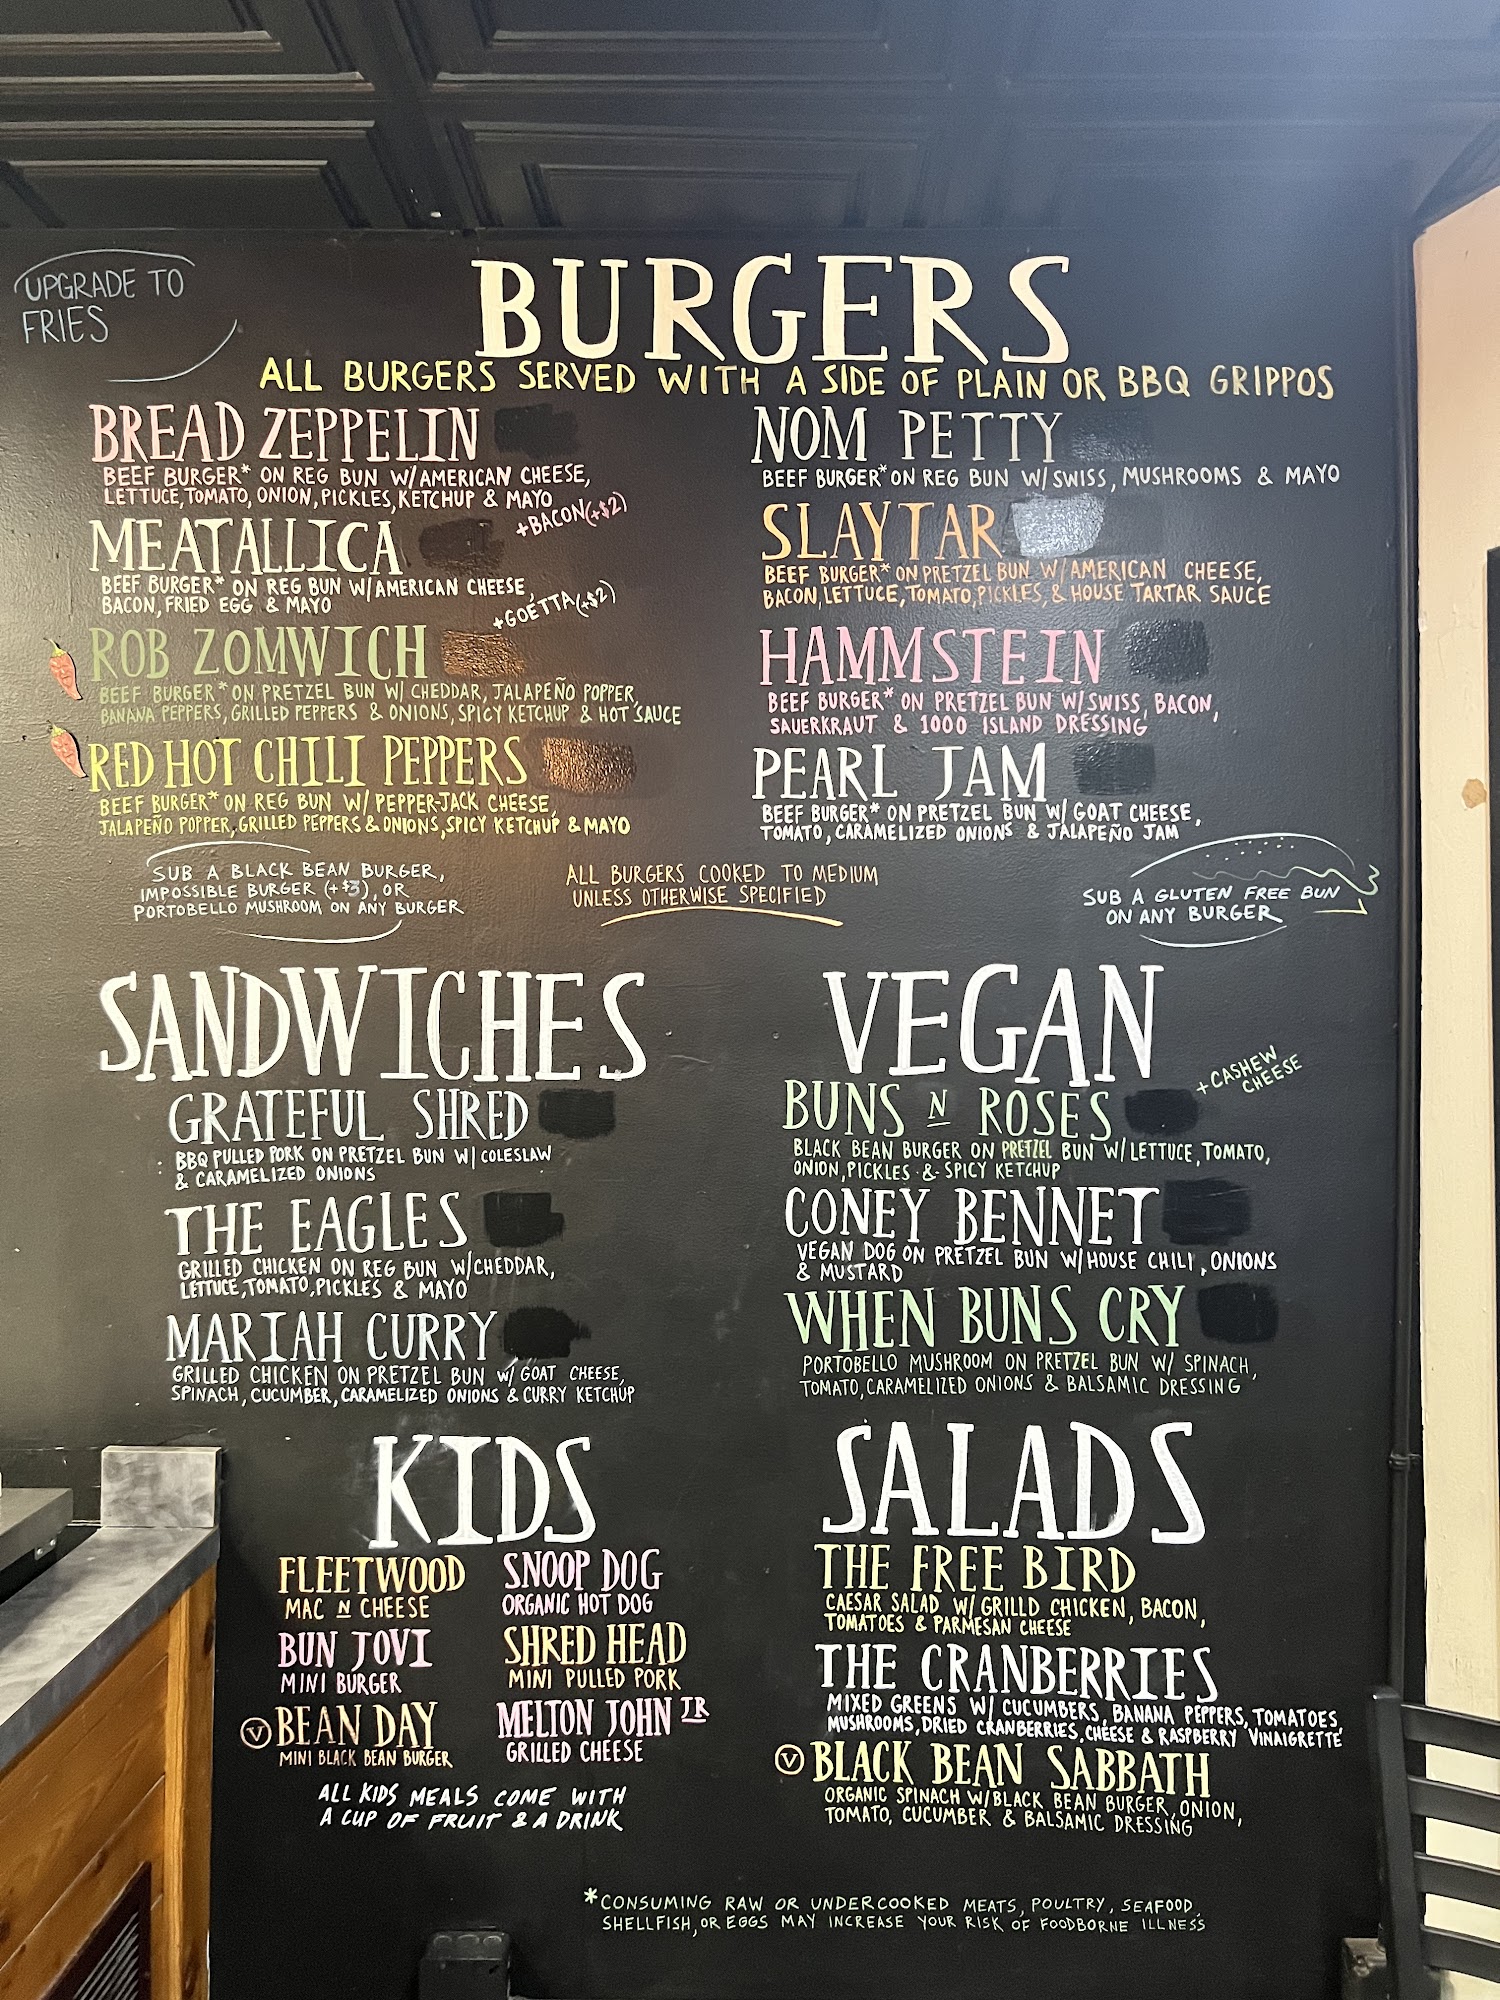 UPGRADE TO
FRIES
BURGERS
ALL BURGERS SERVED WITH A SIDE OF PLAIN OR BBQ GRIPPOS
BREAD ZEPPELIN
BEEF BURGER* ON REG BUN W/AMERICAN CHEESE,
LETTUCE, TOMATO, ONION, PICKLES, KETCHUP & MAYO
+BACON(+$2)
MEATALLICA
BEEF BURGER* ON REG BUN W/AMERICAN CHEESE,
BACON, FRIED EGG & MAYO
+GOETTA(+$2)
ROB ZOMWICH
BEEF BURGER* ON PRETZEL BUN W/ CHEDDAR, JALAPEÑO POPPER,
BANANA PEPPERS, GRILLED PEPPERS & ONIONS, SPICY KETCHUP & HOT SAUCE
RED HOT CHILI PEPPERS
BEEF BURGER* ON REG BUN W/ PEPPER-JACK CHEESE,
JALAPEÑO POPPER, GRILLED PEPPERS & ONIONS, SPICY KETCHUP & MAYO
NOM PETTY
BEEF BURGER* ON REG BUN W/ SWISS, MUSHROOMS & MAYO
SLAYTAR
BEEF BURGER* ON PRETZEL BUN W/AMERICAN CHEESE,
BACON, LETTUCE, TOMATO, PICKLES, & HOUSE TARTAR SAUCE
HAMMSTEIN
BEEF BURGER* ON PRETZEL BUN W/SWISS, BACON,
SAUERKRAUT & 1000 ISLAND DRESSING
PEARL JAM
BEEF BURGER* ON PRETZEL BUN W/ GOAT CHEESE,
TOMATO, CARAMELIZED ONIONS & JALAPEÑO JAM
SUB A BLACK BEAN BURGER,
IMPOSSIBLE BURGER (+$3), OR
PORTOBELLO MUSHROOM ON ANY BURGER
ALL BURGERS COOKED TO MEDIUM
UNLESS OTHERWISE SPECIFIED
SUB A GLUTEN FREE BUN
ON ANY BURGER
SANDWICHES
GRATEFUL SHRED
BBQ PULLED PORK ON PRETZEL BUN W/ COLESLAW
& CARAMELIZED ONIONS
THE EAGLES
GRILLED CHICKEN ON REG BUN W/CHEDDAR,
LETTUCE, TOMATO, PICKLES & MAYO
MARIAH CURRY
GRILLED CHICKEN ON PRETZEL BUN W/ GOAT CHEESE,
SPINACH, CUCUMBER, CARAMELIZED ONIONS & CURRY KETCHUP
VEGAN
+CASHEW
CHEESE
BUNS N ROSES
BLACK BEAN BURGER ON PRETZEL BUN W/LETTUCE, TOMATO,
ONION, PICKLES & SPICY KETCHUP
CONEY BENNET
VEGAN DOG ON PRETZEL BUN W/HOUSE CHILI, ONIONS
& MUSTARD
WHEN BUNS CRY
PORTOBELLO MUSHROOM ON PRETZEL BUN W/ SPINACH,
TOMATO, CARAMELIZED ONIONS & BALSAMIC DRESSING
KIDS
FLEETWOOD
MAC N CHEESE
BUN JOVI
MINI BURGER
V BEAN DAY
MINI BLACK BEAN BURGER
SNOOP DOG
ORGANIC HOT DOG
SHRED HEAD
MINI PULLED PORK
MELTON JOHN JR
GRILLED CHEESE
ALL KIDS MEALS COME WITH
A CUP OF FRUIT & A DRINK
SALADS
THE FREE BIRD
CAESAR SALAD W/ GRILLD CHICKEN, BACON,
TOMATOES & PARMESAN CHEESE
THE CRANBERRIES
MIXED GREENS W/ CUCUMBERS, BANANA PEPPERS, TOMATOES,
MUSHROOMS, DRIED CRANBERRIES, CHEESE & RASPBERRY VINAIGRETTE
V BLACK BEAN SABBATH
ORGANIC SPINACH W/BLACK BEAN BURGER, ONION,
TOMATO, CUCUMBER & BALSAMIC DRESSING
*CONSUMING RAW OR UNDERCOOKED MEATS, POULTRY, SEAFOOD,
SHELLFISH, OR EGGS MAY INCREASE YOUR RISK OF FOODBORNE ILLNESS